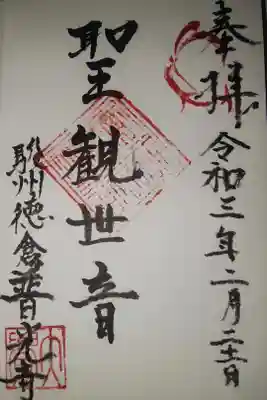 奉拝 令和三年二月二十一日
聖観世音
駿州徳倉普光寺